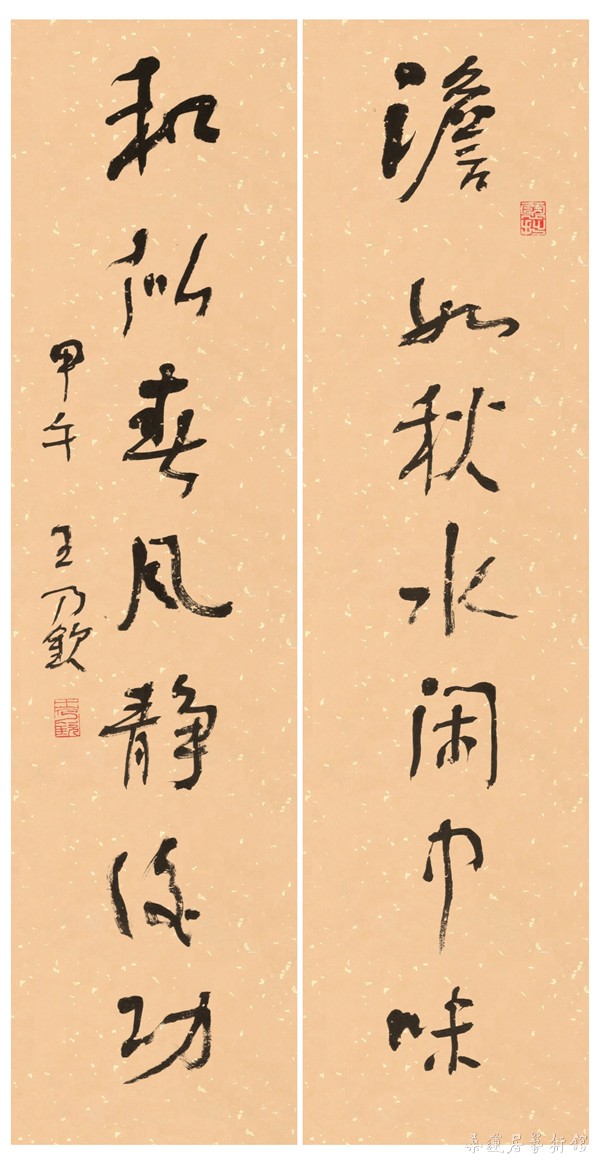 澹如秋水闲中味
和似春风静後功
甲午 王乃欽
桑蓮居藝術馆